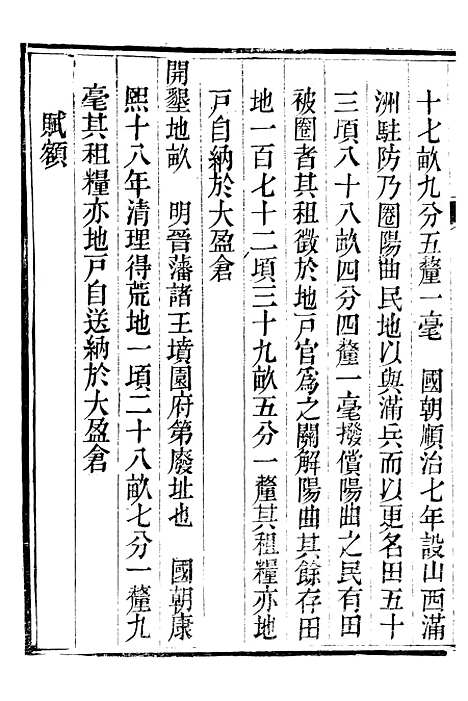 十七畝九分五釐一毫　國朝順治七年設山西滿
洲駐防乃圈陽曲民地以與滿兵而以更名田五十
三頃八十八畝四分四釐一毫撥償陽曲之民有田
被圈者其租徵於地戸官爲之關解陽曲其餘存田
地一百七十二頃三十九畝五分一釐其租糧亦地
戸自納於大盈倉
開墾地畝　明晉藩諸王墳園府第廢址也　國朝康
熙十八年清理得荒地一頃二十八畝七分一釐九
毫其租糧亦地戸自送納於大盈倉
賦額